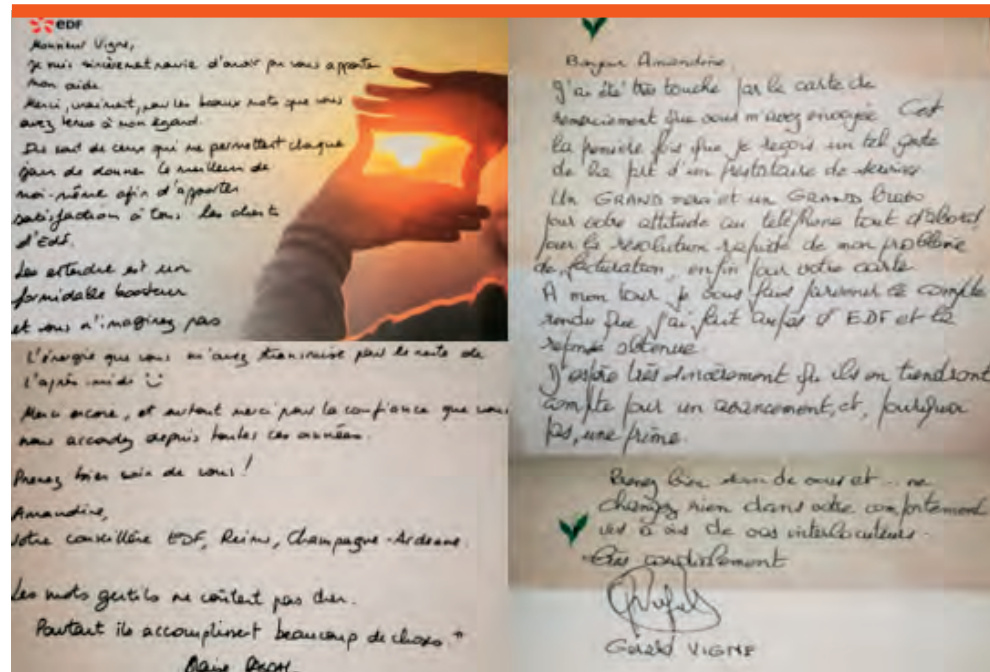 eDF
Monsieur Vigne,
Je suis sincèrement ravie d'avoir pu vous apporter
mon aide
Merci, vraiment, pour les beaux mots que vous
avez tenus à mon égard.
Ils sont de ceux qui me permettent chaque
jour de donner le meilleur de
moi-même afin d'apporter
satisfaction à tous les clients
d'EDF.
Les entendre est un
formidable booster
et vous n'imaginez pas
L'énergie que vous m'avez transmise pour le reste de
l'après-midi
Merci encore, et surtout merci pour la confiance que vous
nous accordez depuis toutes ces années.
Prenez bien soin de vous !
Amandine,
votre conseillère EDF, Reims, Champagne-Ardenne.
Les mots gentils ne coûtent pas cher.
Pourtant ils accomplissent beaucoup de choses "
Blaise PASCAL
Bonjour Amandine,
J'ai été très touché par la carte de
remerciement que vous m'avez envoyée C'est
la première fois que je reçois un tel geste
de la part d'un prestataire de services
Un GRAND merci et un GRAND bravo
pour votre attitude au téléphone tout d'abord
pour la résolution rapide de mon problème
de facturation, enfin pour votre carte
A mon tour je vous fais parvenir le compte
rendu que j'ai fait auprès d'EDF et la
réponse obtenue
J'espère très sincèrement qu'ils en tiendront
compte pour un avancement, et, pourquoi
pas, une prime.
Prenez bien soin de vous et .. ne
changez rien dans votre comportement
vis à vis de vos interlocuteurs.
Très cordialement
Gérald VIGNE